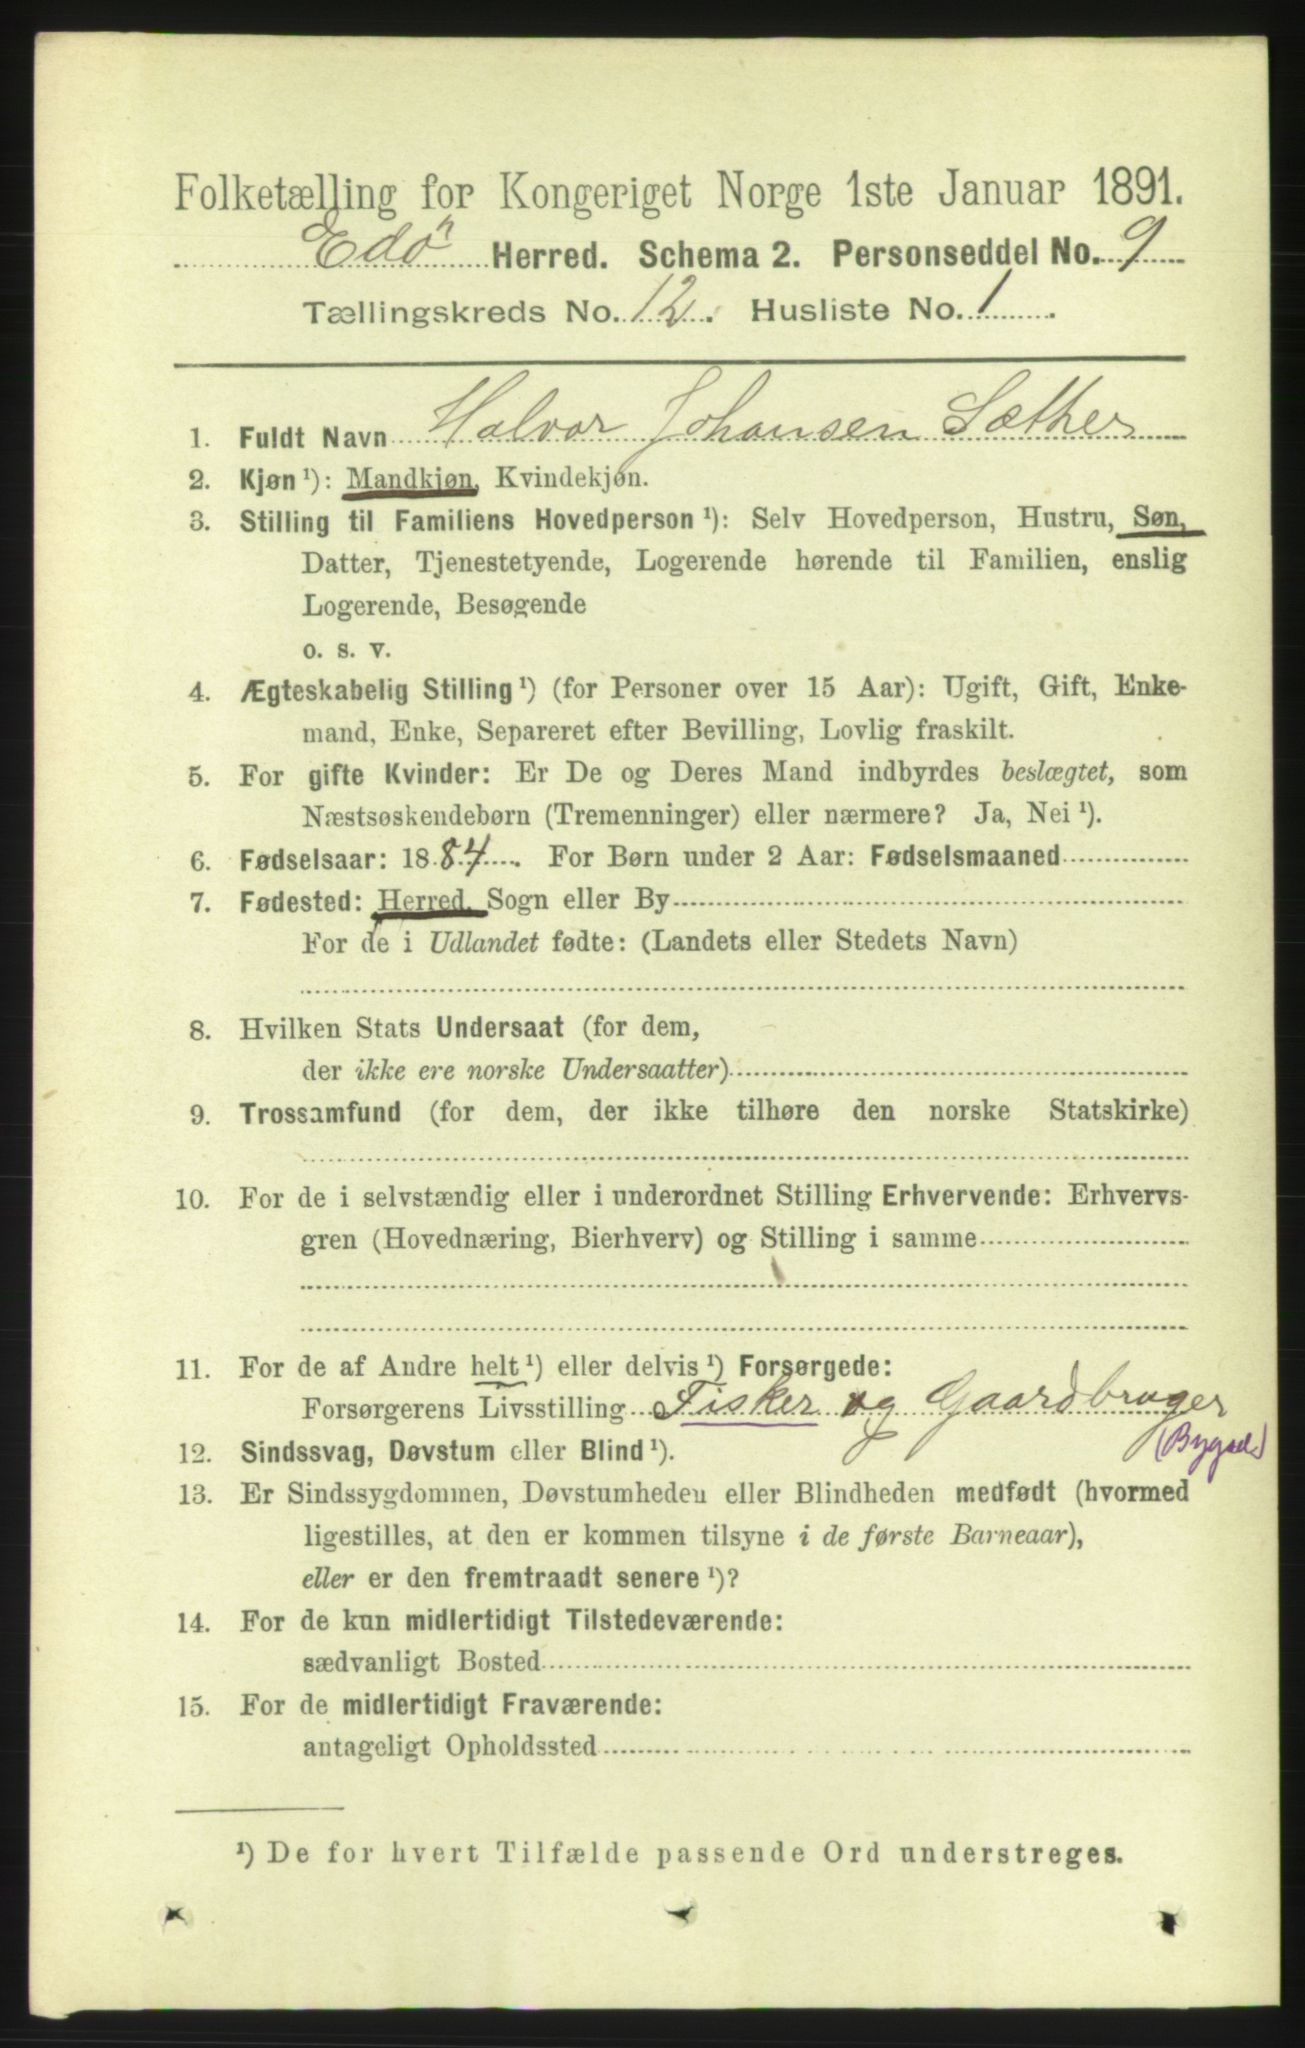 Folketælling for Kongeriget Norge 1ste Januar 1891.
Edö Herred. Schema 2. Personseddel No. 9
Tællingskreds No. 12. Husliste No. 1.
1. Fuldt Navn Halvor Johansen Sæther
2. Kjøn ¹): Mandkjøn, Kvindekjøn.
3. Stilling til Familiens Hovedperson ¹): Selv Hovedperson, Hustru, Søn,
Datter, Tjenestetyende, Logerende hørende til Familien, enslig
Logerende, Besøgende
o. s. v.
4. Ægteskabelig Stilling ¹) (for Personer over 15 Aar): Ugift, Gift, Enke-
mand, Enke, Separeret efter Bevilling, Lovlig fraskilt.
5. For gifte Kvinder: Er De og Deres Mand indbyrdes beslægtet, som
Næstsøskendebørn (Tremenninger) eller nærmere? Ja, Nei ¹).
6. Fødselsaar: 1884. For Børn under 2 Aar: Fødselsmaaned
7. Fødested: Herred, Sogn eller By
For de i Udlandet fødte: (Landets eller Stedets Navn)
8. Hvilken Stats Undersaat (for dem,
der ikke ere norske Undersaatter)
9. Trossamfund (for dem, der ikke tilhøre den norske Statskirke)
10. For de i selvstændig eller i underordnet Stilling Erhvervende: Erhvervs-
gren (Hovednæring, Bierhverv) og Stilling i samme
11. For de af Andre helt ¹) eller delvis ¹) Forsørgede:
Forsørgerens Livsstilling Fisker og Gaardbruger
(Bygsel)
12. Sindssvag, Døvstum eller Blind ¹).
13. Er Sindssygdommen, Døvstumheden eller Blindheden medfødt (hvormed
ligestilles, at den er kommen tilsyne i de første Barneaar),
eller er den fremtraadt senere ¹)?
14. For de kun midlertidigt Tilstedeværende:
sædvanligt Bosted
15. For de midlertidigt Fraværende:
antageligt Opholdssted
¹) De for hvert Tilfælde passende Ord understreges.